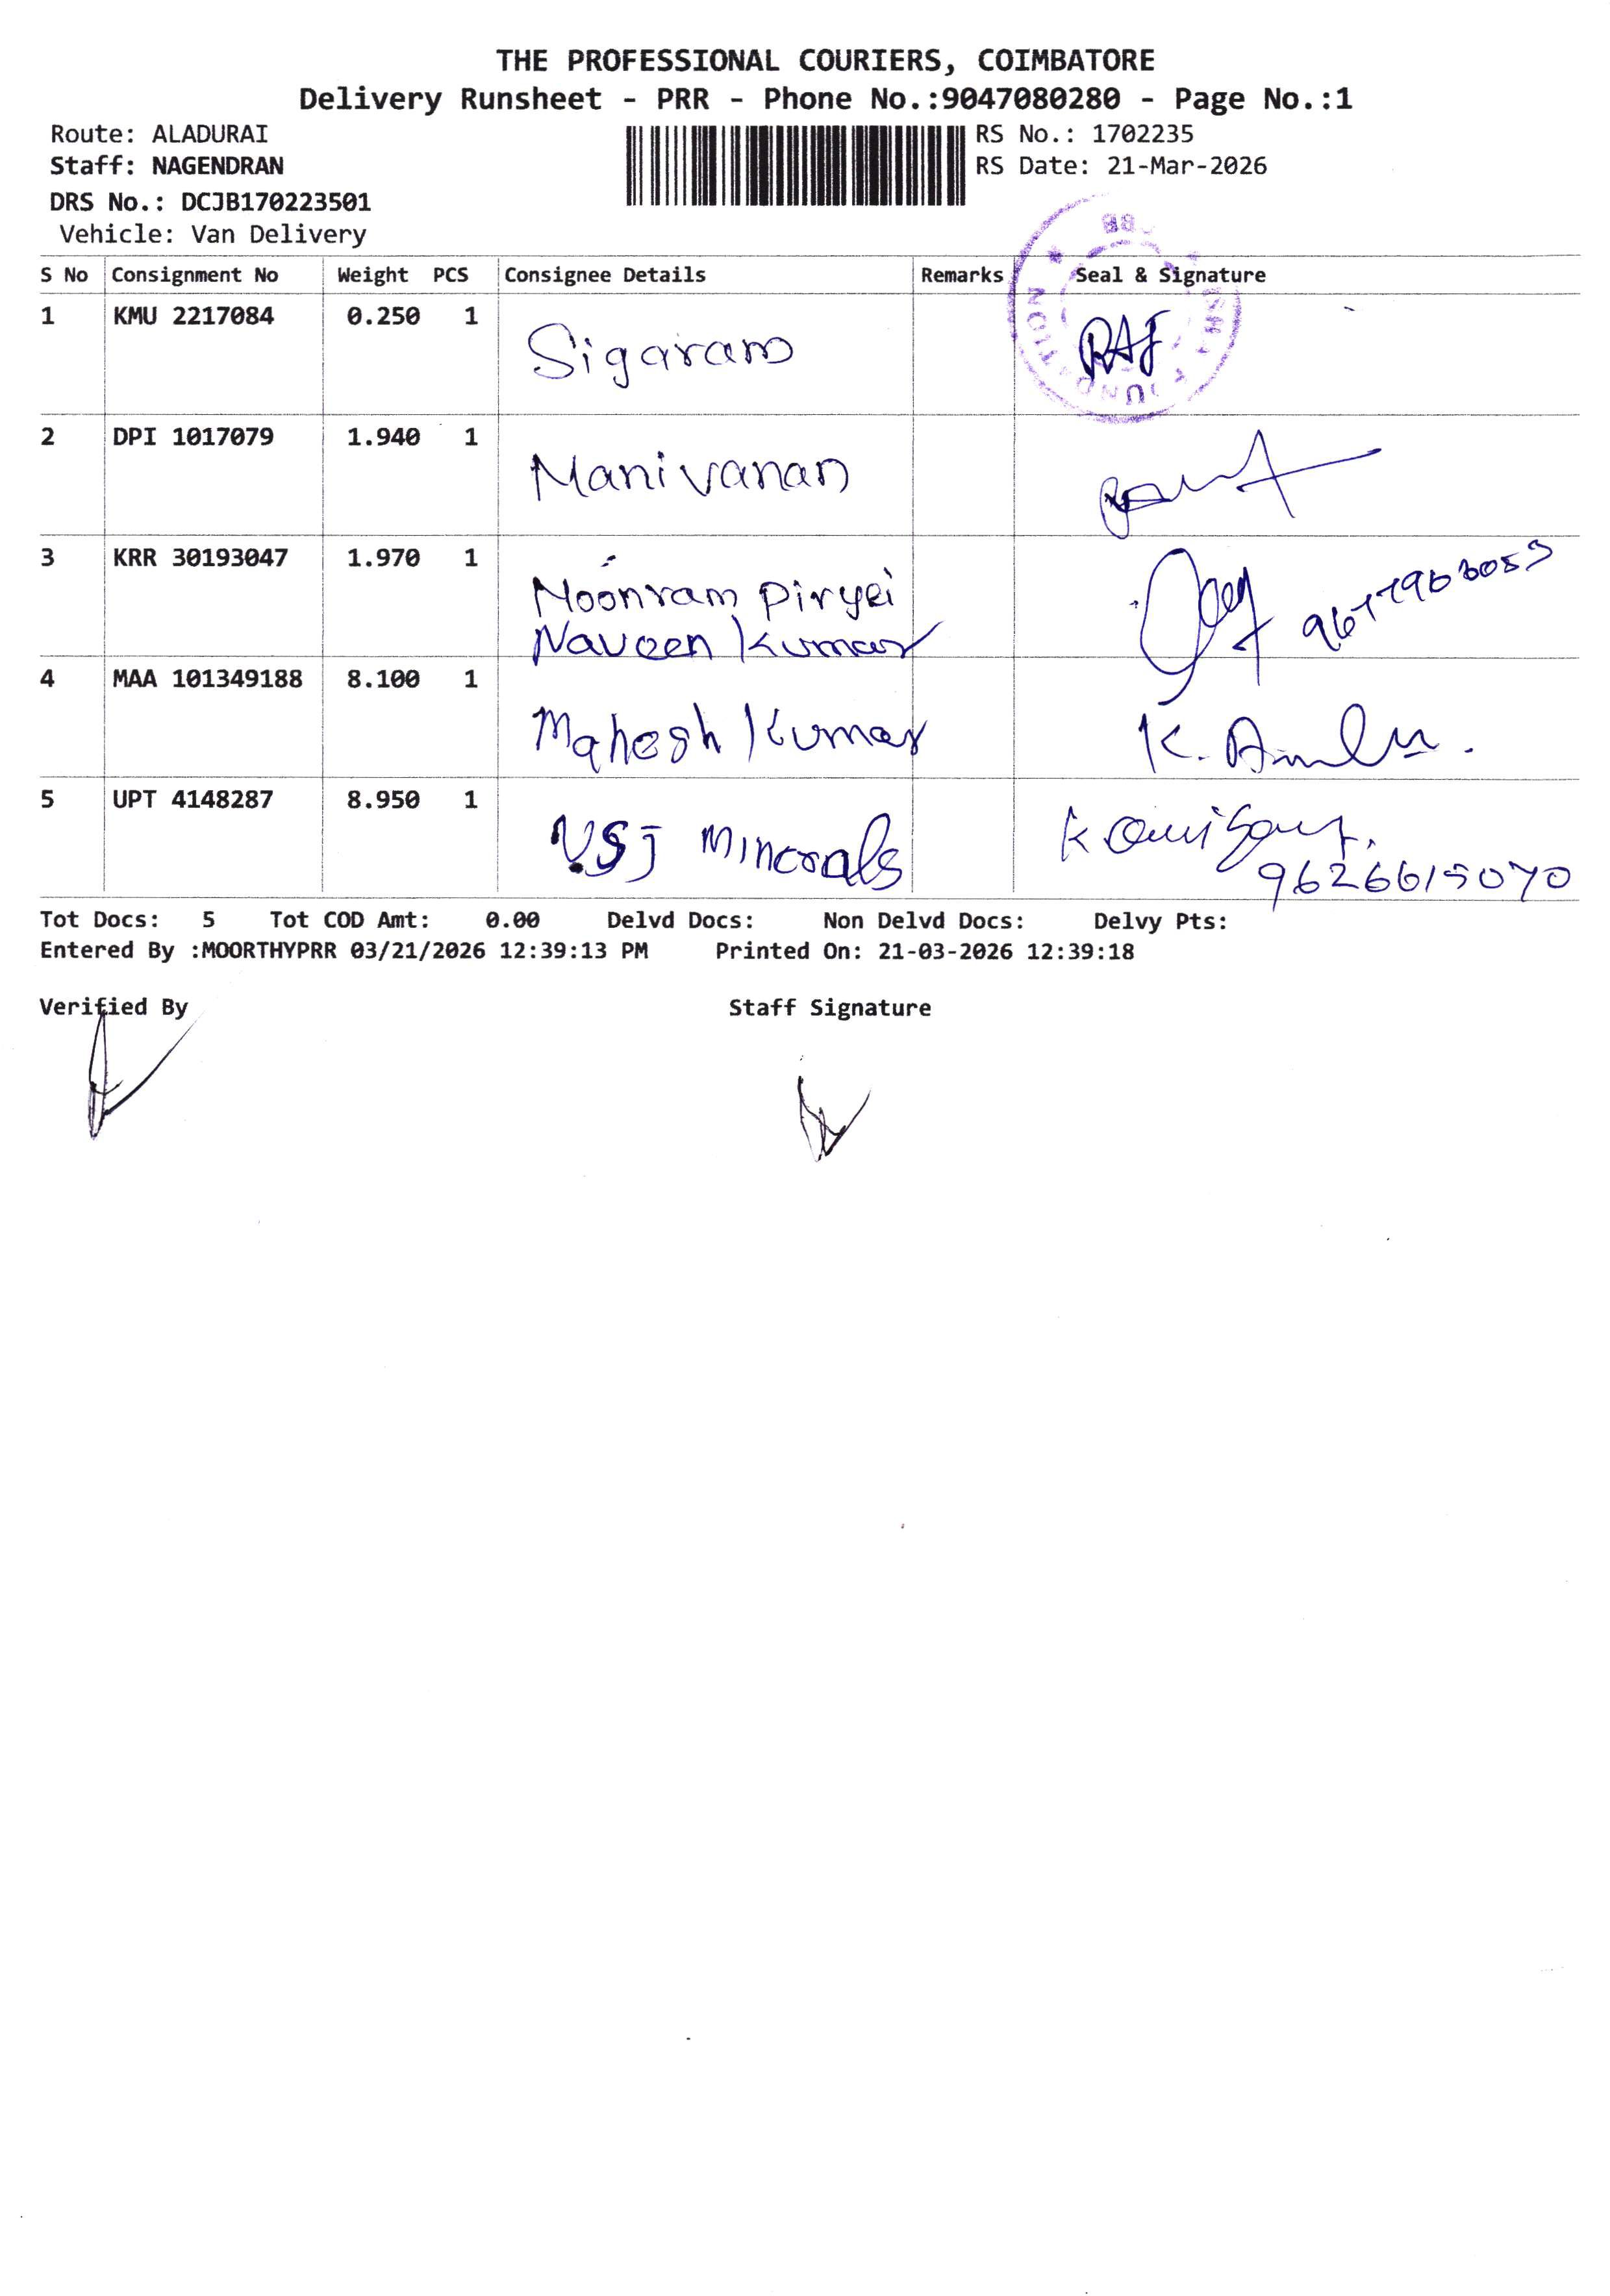 THE PROFESSIONAL COURIERS, COIMBATORE
Delivery Runsheet - PRR - Phone No.:9047080280 - Page No.:1
Route: ALADURAI
RS No.: 1702235
Staff: NAGENDRAN
RS Date: 21-Mar-2026
DRS No.: DCJB170223501
Vehicle: Van Delivery
S No Consignment No Weight PCS Consignee Details Remarks Seal & Signature
1 KMU 2217084 0.250 1 Sigaram RAJ
2 DPI 1017079 1.940 1 Manivanan
3 KRR 30193047 1.970 1 Moonram Piryei
Naveen Kumar
4 MAA 101349188 8.100 1 Mahesh Kumar
5 UPT 4148287 8.950 1 VSJ Minerals
9626615070
Tot Docs: 5 Tot COD Amt: 0.00 Delvd Docs: Non Delvd Docs: Delvy Pts:
Entered By :MOORTHYPRR 03/21/2026 12:39:13 PM Printed On: 21-03-2026 12:39:18
Verified By Staff Signature